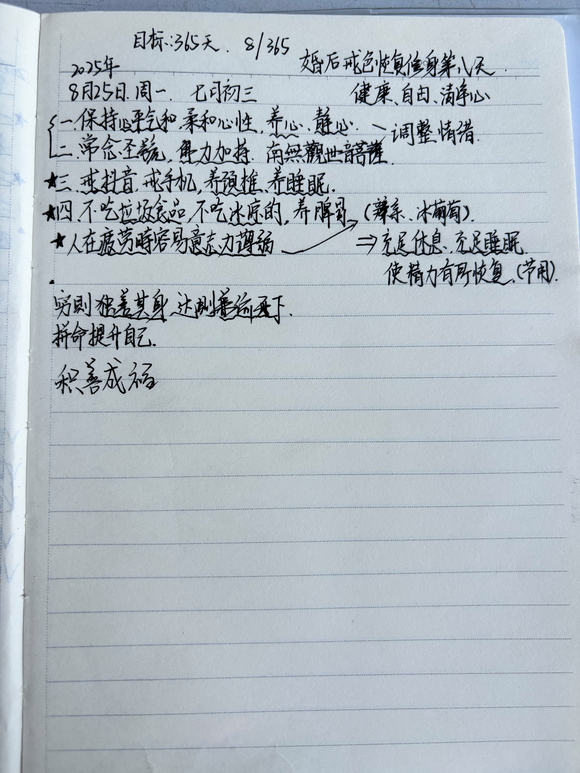 目标:365天. 8/365
2025年 婚后戒色恢复健身第八天.
8月25日.周一. 七月初三 健康、自由、清净心
一.保持心平气和.柔和心性,养心.静心. 调整情绪.
二.常念圣號,力加持.南無觀世音菩薩
★三.戒抖音.戒手机,养颈椎.养睡眠.
★四.不吃垃圾食品,不吃冰库的,养脾胃.(辣条、冰葡萄).
★人在疲劳時容易意志力薄弱 ⇒充足休息、充足睡眠.
使精力有所恢复,(节用).
穷則独善其身,达則兼济天下.
拼命提升自己.
积善成福